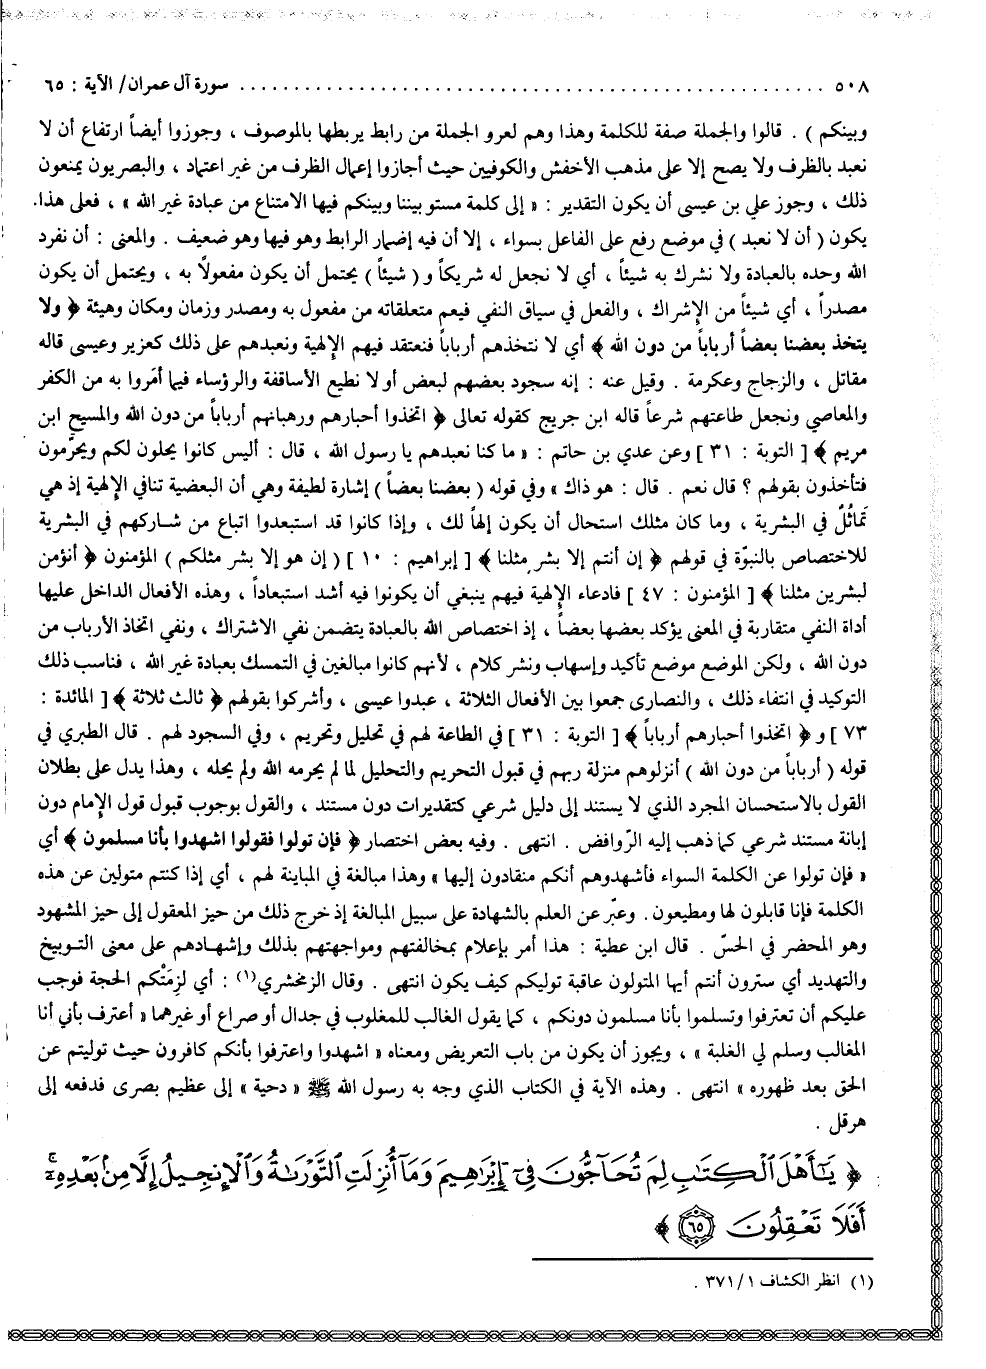 ٥٠٨ ........................................................ سورة آل عمران/ الآية : ٦٥
وبينكم ) . قالوا والجملة صفة للكلمة وهذا وهم لعرو الجملة من رابط يربطها بالموصوف ، وجوزوا أيضاً ارتفاع أن لا
نعبد بالظرف ولا يصح إلا على مذهب الأخفش والكوفيين حيث أجازوا إعمال الظرف من غير اعتماد ، والبصريون يمنعون
ذلك ، وجوز علي بن عيسى أن يكون التقدير : « إلى كلمة مستو بيننا وبينكم فيها الامتناع من عبادة غير الله » ، فعلى هذا.
يكون ( أن لا نعبد ) في موضع رفع على الفاعل بسواء ، إلا أن فيه إضمار الرابط وهو فيها وهو ضعيف . والمعنى : أن نفرد
الله وحده بالعبادة ولا نشرك به شيئاً ، أي لا نجعل له شريكاً و ( شيئاً ) يحتمل أن يكون مفعولاً به ، ويحتمل أن يكون
مصدراً ، أي شيئاً من الإشراك ، والفعل في سياق النفي فيعم متعلقاته من مفعول به ومصدر وزمان ومكان وهيئة ﴿ ولا
يتخذ بعضنا بعضاً أرباباً من دون الله ﴾ أي لا نتخذهم أرباباً فنعتقد فيهم الإلهية ونعبدهم على ذلك كعزير وعيسى قاله
مقاتل ، والزجاج وعكرمة . وقيل عنه : إنه سجود بعضهم لبعض أو لا نطيع الأساقفة والرؤساء فيما أمَروا به من الكفر
والمعاصي ونجعل طاعتهم شرعاً قاله ابن جريج كقوله تعالى ﴿ اتخذوا أحبارهم ورهبانهم أرباباً من دون الله والمسيح ابن
مريم ﴾ [ التوبة : ٣١ ] وعن عدي بن حاتم : « ما كنا نعبدهم يا رسول الله ، قال : أليس كانوا يحلون لكم ويحرّمون
فتأخذون بقولهم ؟ قال نعم . قال : هو ذاك » وفي قوله ( بعضنا بعضاً ) إشارة لطيفة وهي أن البعضية تنافي الإلهية إذ هي
تَماثُلٌ في البشرية ، وما كان مثلك استحال أن يكون إلهاً لك ، وإذا كانوا قد استبعدوا اتباع من شاركهم في البشرية
للاختصاص بالنبوّة في قولهم ﴿ إن أنتم إلا بشر مثلنا ﴾ [ إبراهيم : ١٠ ] ( إن هو إلا بشر مثلكم ) المؤمنون ﴿ أنؤمن
لبشرين مثلنا ﴾ [ المؤمنون : ٤٧ ] فادعاء الإلهية فيهم ينبغي أن يكونوا فيه أشد استبعاداً ، وهذه الأفعال الداخل عليها
أداة النفي متقاربة في المعنى يؤكد بعضها بعضاً ، إذ اختصاص الله بالعبادة يتضمن نفي الاشتراك ، ونفي اتخاذ الأرباب من
دون الله ، ولكن الموضع موضع تأكيد وإسهاب ونشر كلام ، لأنهم كانوا مبالغين في التمسك بعبادة غير الله ، فناسب ذلك
التوكيد في انتفاء ذلك ، والنصارى جمعوا بين الأفعال الثلاثة ، عبدوا عيسى ، وأشركوا بقولهم ﴿ ثالث ثلاثة ﴾ [ المائدة :
٧٣ ] و ﴿ اتخذوا أحبارهم أرباباً ﴾ [ التوبة : ٣١ ] في الطاعة لهم في تحليل وتحريم ، وفي السجود لهم . قال الطبري في
قوله ( أرباباً من دون الله ) أنزلوهم منزلة ربهم في قبول التحريم والتحليل لما لم يحرمه الله ولم يحله ، وهذا يدل على بطلان
القول بالاستحسان المجرد الذي لا يستند إلى دليل شرعي كتقديرات دون مستند ، والقول بوجوب قبول قول الإمام دون
إبانة مستند شرعي كما ذهب إليه الرّوافض . انتهى . وفيه بعض اختصار ﴿ فإن تولوا فقولوا اشهدوا بأنا مسلمون ﴾ أي
« فإن تولوا عن الكلمة السواء فأشهدوهم أنكم منقادون إليها » وهذا مبالغة في المباينة لهم ، أي إذا كنتم متولين عن هذه
الكلمة فإنا قابلون لها ومطيعون . وعبّر عن العلم بالشهادة على سبيل المبالغة إذ خرج ذلك من حيز المعقول إلى حيز المشهود
وهو المحضر في الحسّ . قال ابن عطية : هذا أمر بإعلام بمخالفتهم ومواجهتهم بذلك وإشهادهم على معنى التوبيخ
والتهديد أي سترون أنتم أيها المتولون عاقبة توليكم كيف يكون انتهى . وقال الزمخشري(١) : أي لزِمَتْكم الحجة فوجب
عليكم أن تعترفوا وتسلموا بأنا مسلمون دونكم ، كما يقول الغالب للمغلوب في جدال أو صراع أو غيرهما « أعترف بأني أنا
المغالب وسلم لي الغلبة » ، ويجوز أن يكون من باب التعريض ومعناه « اشهدوا واعترفوا بأنكم كافرون حيث توليتم عن
الحق بعد ظهوره » انتهى . وهذه الآية في الكتاب الذي وجه به رسول الله ﷺ « دحية » إلى عظيم بصرى فدفعه إلى
هرقل .
﴿ يَٰٓأَهْلَ ٱلْكِتَٰبِ لِمَ تُحَآجُّونَ فِىٓ إِبْرَٰهِيمَ وَمَآ أُنزِلَتِ ٱلتَّوْرَىٰةُ وَٱلْإِنجِيلُ إِلَّا مِنۢ بَعْدِهِۦٓ ۚ
أَفَلَا تَعْقِلُونَ ٦٥ ﴾
(١) انظر الكشاف ٣٧١/١ .